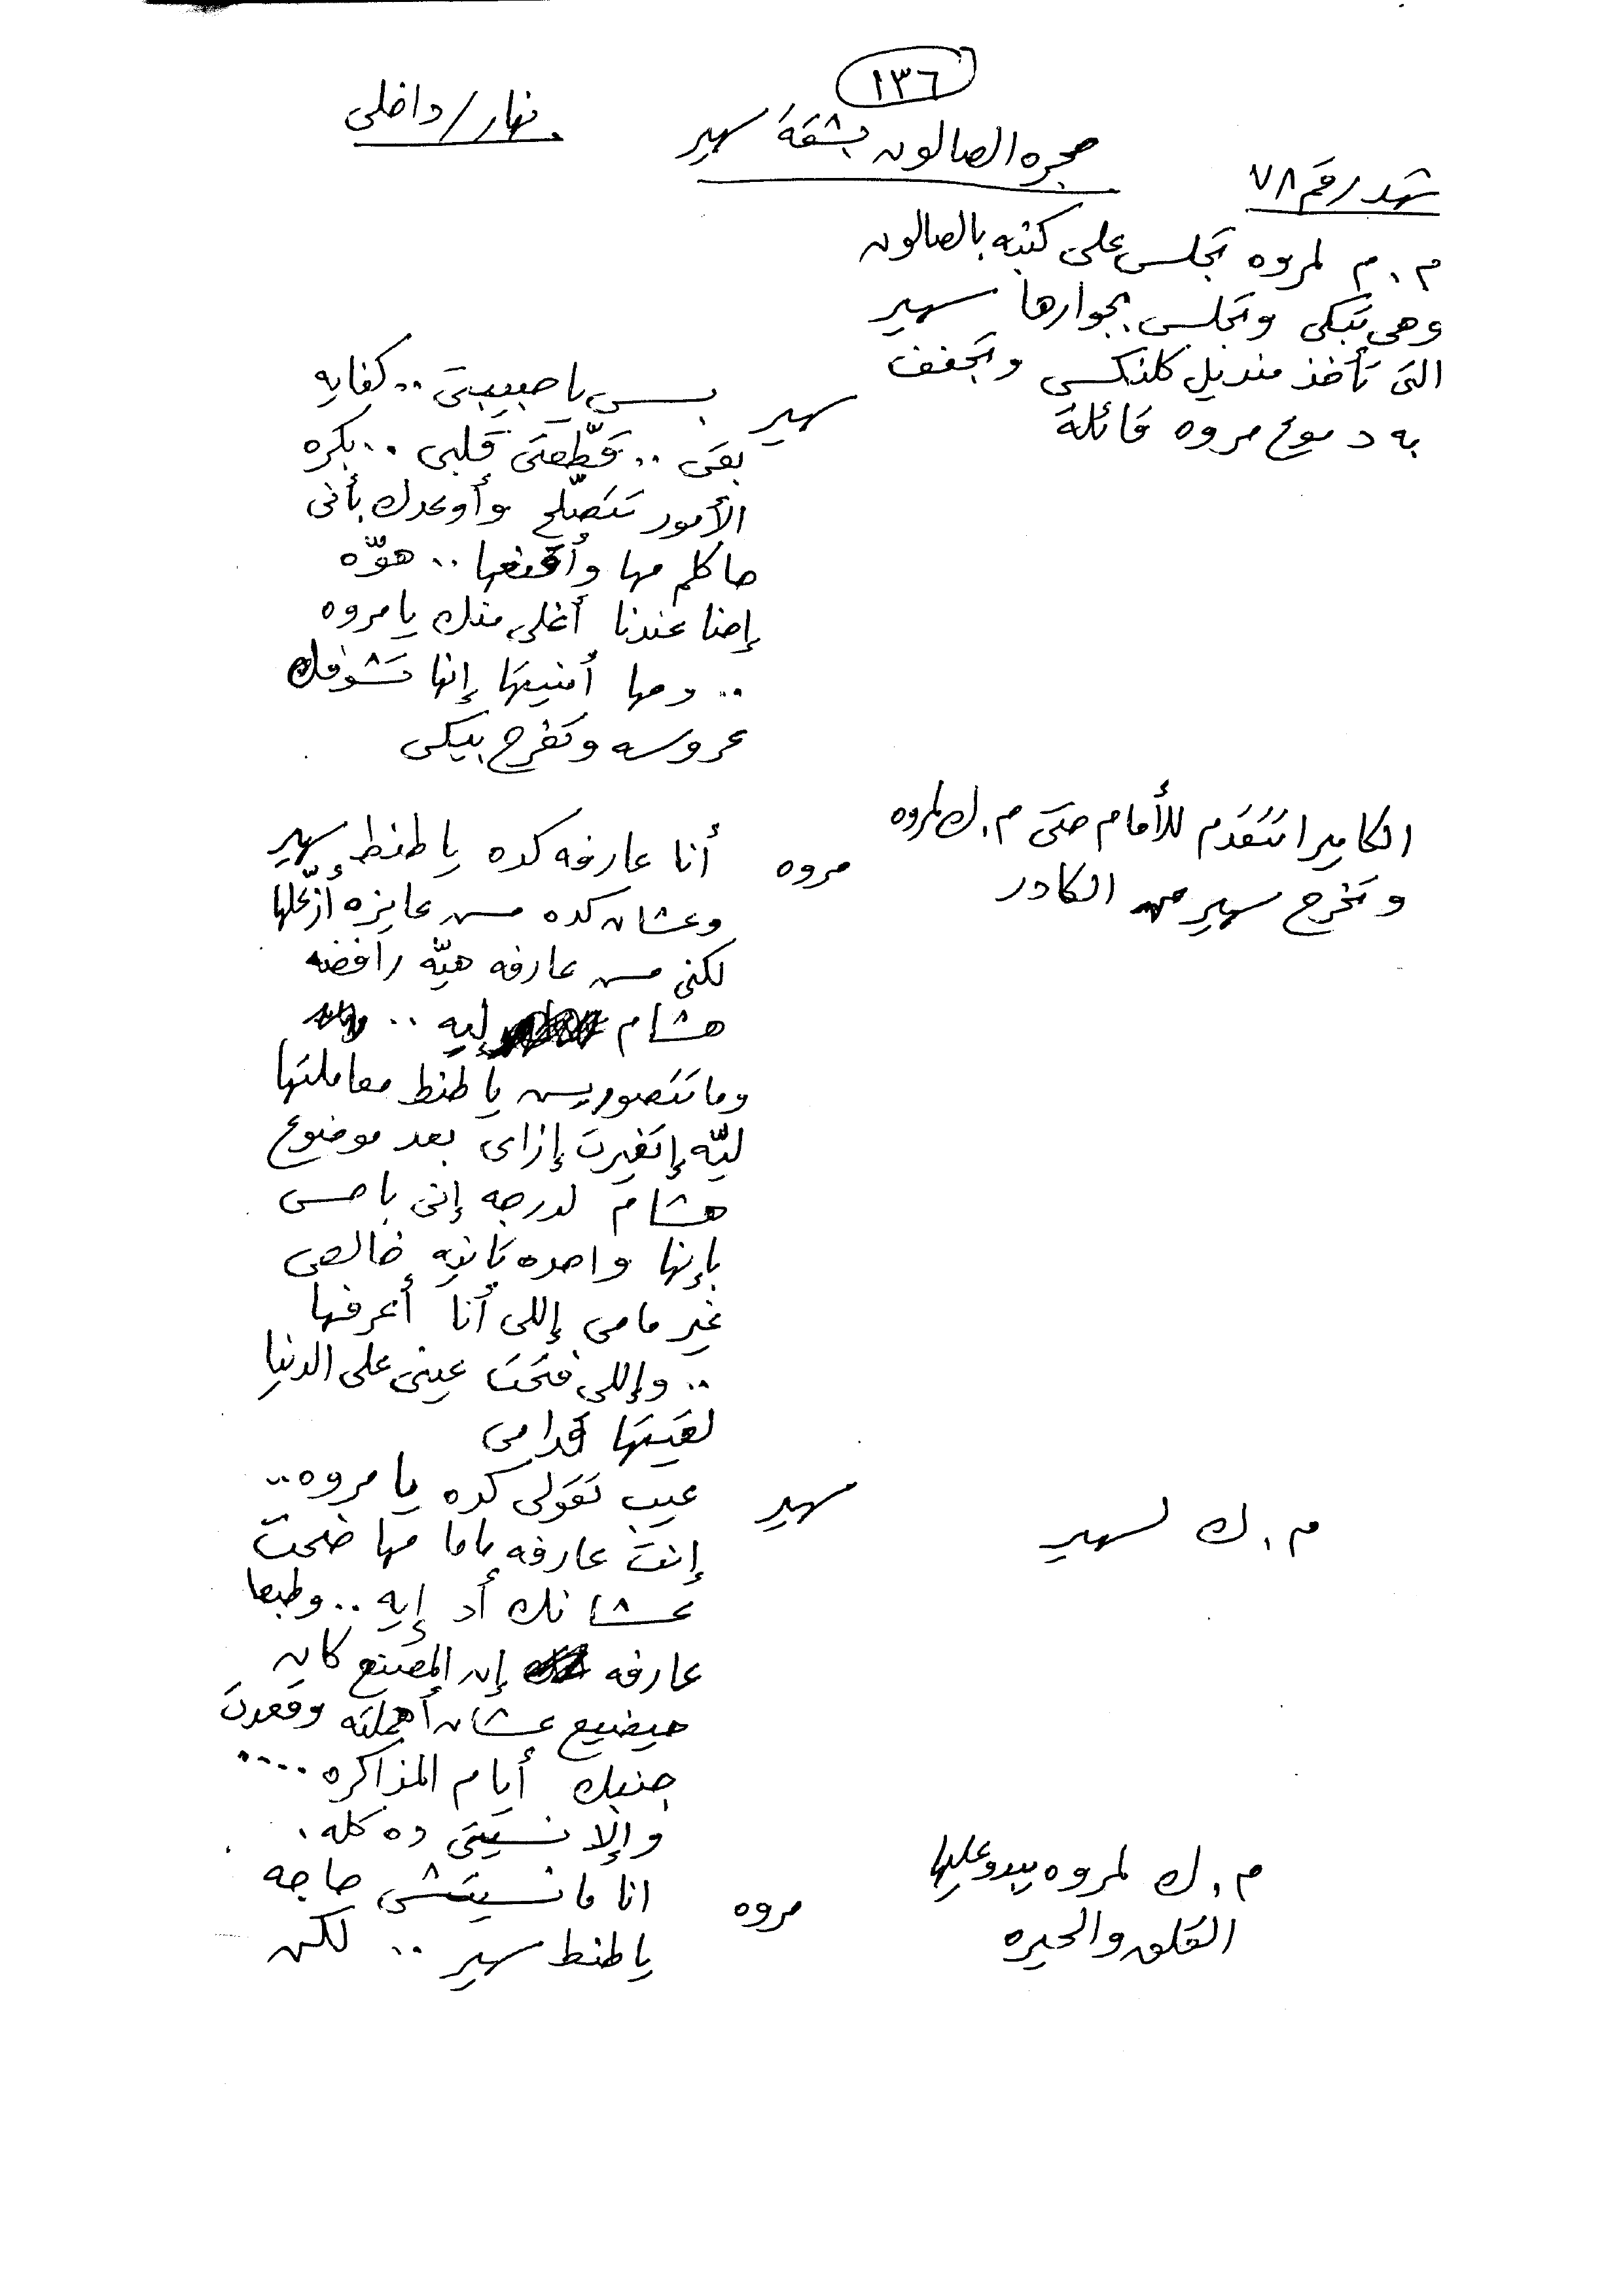 ١٣٦
مشهد رقم ٧٨
حجره الصالون بشقة سهير
نهار/داخلى
م.م لمروه تجلس على كنبه بالصالون
وهى تبكى وتجلس بجوارها سهير
التى تأخذ منديل كلنكس وتجفف
به دموع مروه قائلة
سهير
بس يا حبيبتى .. كفايه
بقى .. قطّعتى قلبى .. بكره
الأمور تتصلّح وأوعدك بأنى
حاكلم مها وأقنعها .. هوّه
إحنا عندنا أغلى منك يا مروه
.. ومها أمنيتها إنها تشوفك
عروسه وتفرح بيكى
الكاميرا تتقدم للأمام حتى م.ك لمروه
وتخرج سهير من الكادر
مروه
أنا عارفه كده يا طنط سهير
وعشان كده مش عايزه أزعّلها
لكنى مش عارفه هيّه رافضه
هشام ليه ..
وما تتصوريش يا طنط معاملتها
ليّه إتغيرت إزاى بعد موضوع
هشام لدرجه إنى باحس
بإنها واحده تانيه خالص
غير مامى إللى أنا أعرفها
.. وإللى فتحت عينى على الدنيا
لقيتها قدامى
م.ك لسهير
سهير
عيب تقولى كده يا مروه ..
إنت عارفه ماما مها ضحت
عشانك أد إيه .. وطبعا
عارفه إن المصنع كان
حيضيع عشان أهملته وقعدت
جنبك أيام المذاكره ....
وإلا نسيتى ده كله .
م.ك لمروه يبدو عليها
القلق والحيره
مروه
انا ما نسيتش حاجه
يا طنط سهير .. لكن